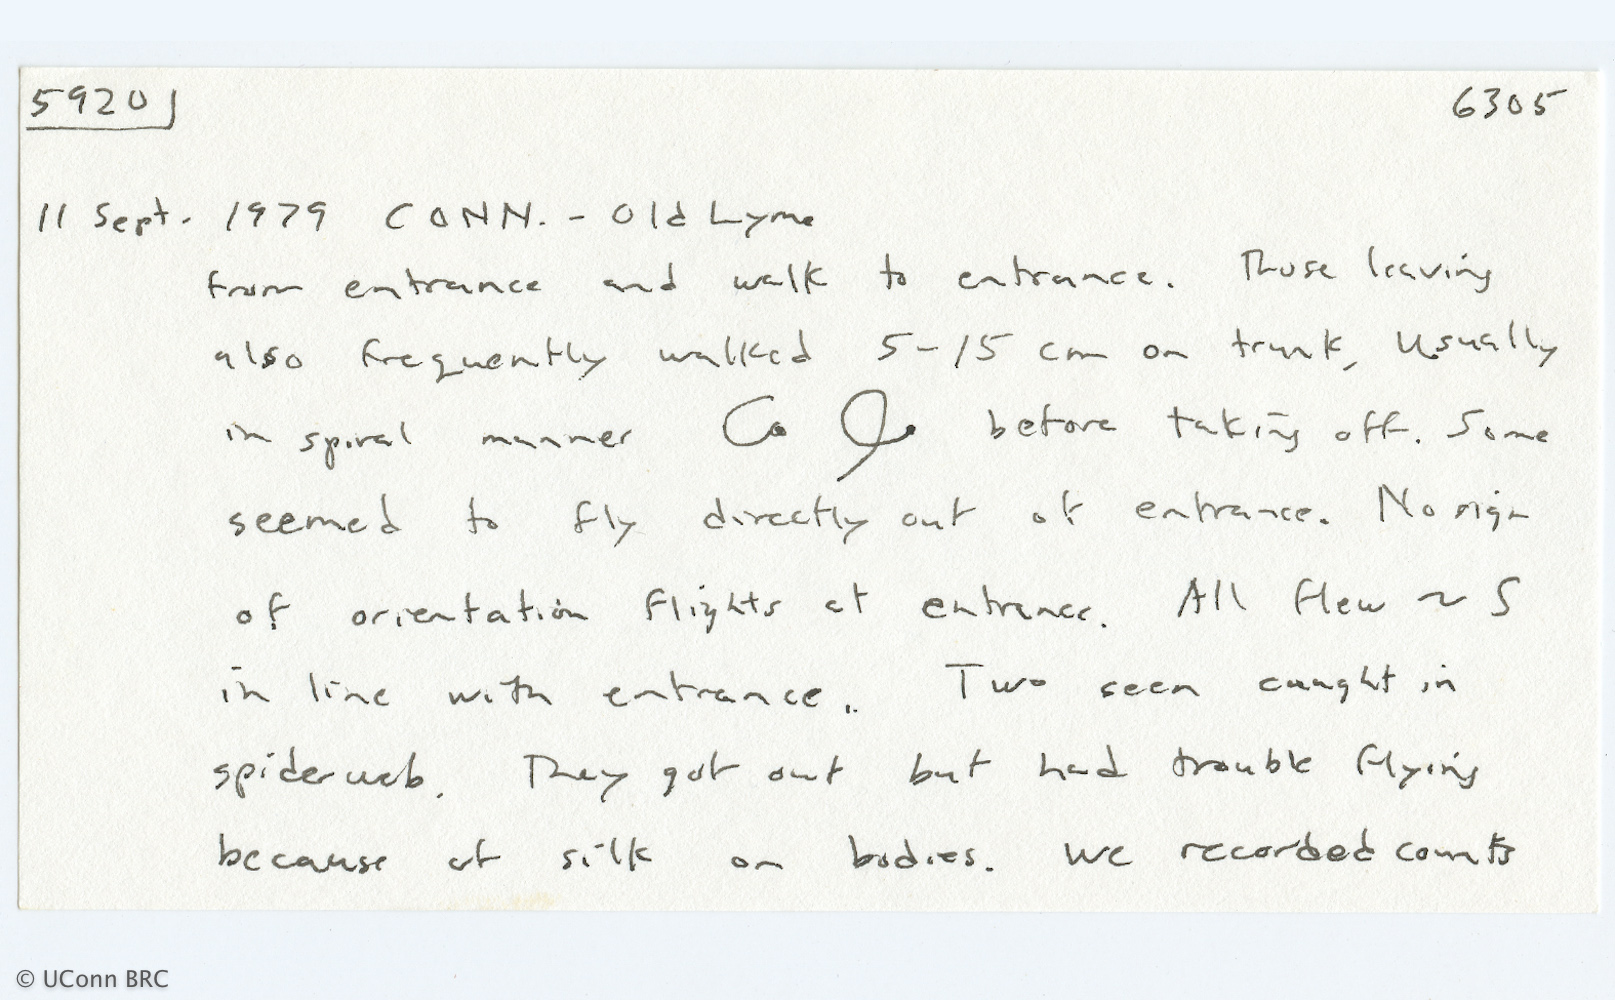 5920 6305
11 Sept. 1979 CONN. - Old Lyme
from entrance and walk to entrance. Those leaving
also frequently walked 5-15 cm on trunk, usually
in spiral manner before taking off. Some
seemed to fly directly out of entrance. No sign
of orientation flights at entrance. All flew ~ S
in line with entrance.
Two seen caught in
spiderweb. They got out but had trouble flying
because of silk on bodies. We recorded counts
© UConn BRC